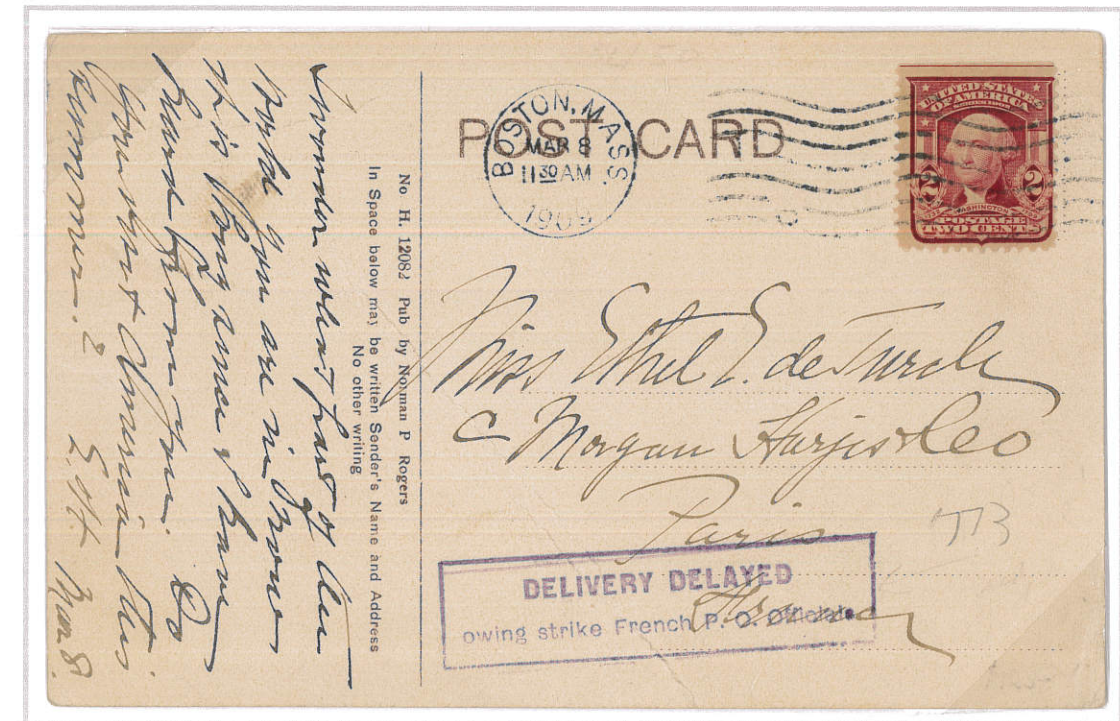 POST CARD
BOSTON, MASS.
MAR 8
11 30 AM
1909
UNITED STATES
OF AMERICA
SERIES 1902
2 2
WASHINGTON
POSTAGE
TWO CENTS
No H. 1208 Pub by Norman P Rogers
In Space below may be written Sender's Name and Address
No other writing
I wonder what part of the
world you are in now
it is long since I have
heard from you. Do
you visit America this
summer?
Mar 8.
Miss Ethel E. de Turck
c Morgan Harjes & Co
Paris
France
773
DELIVERY DELAYED
owing strike French P. O. Officials.